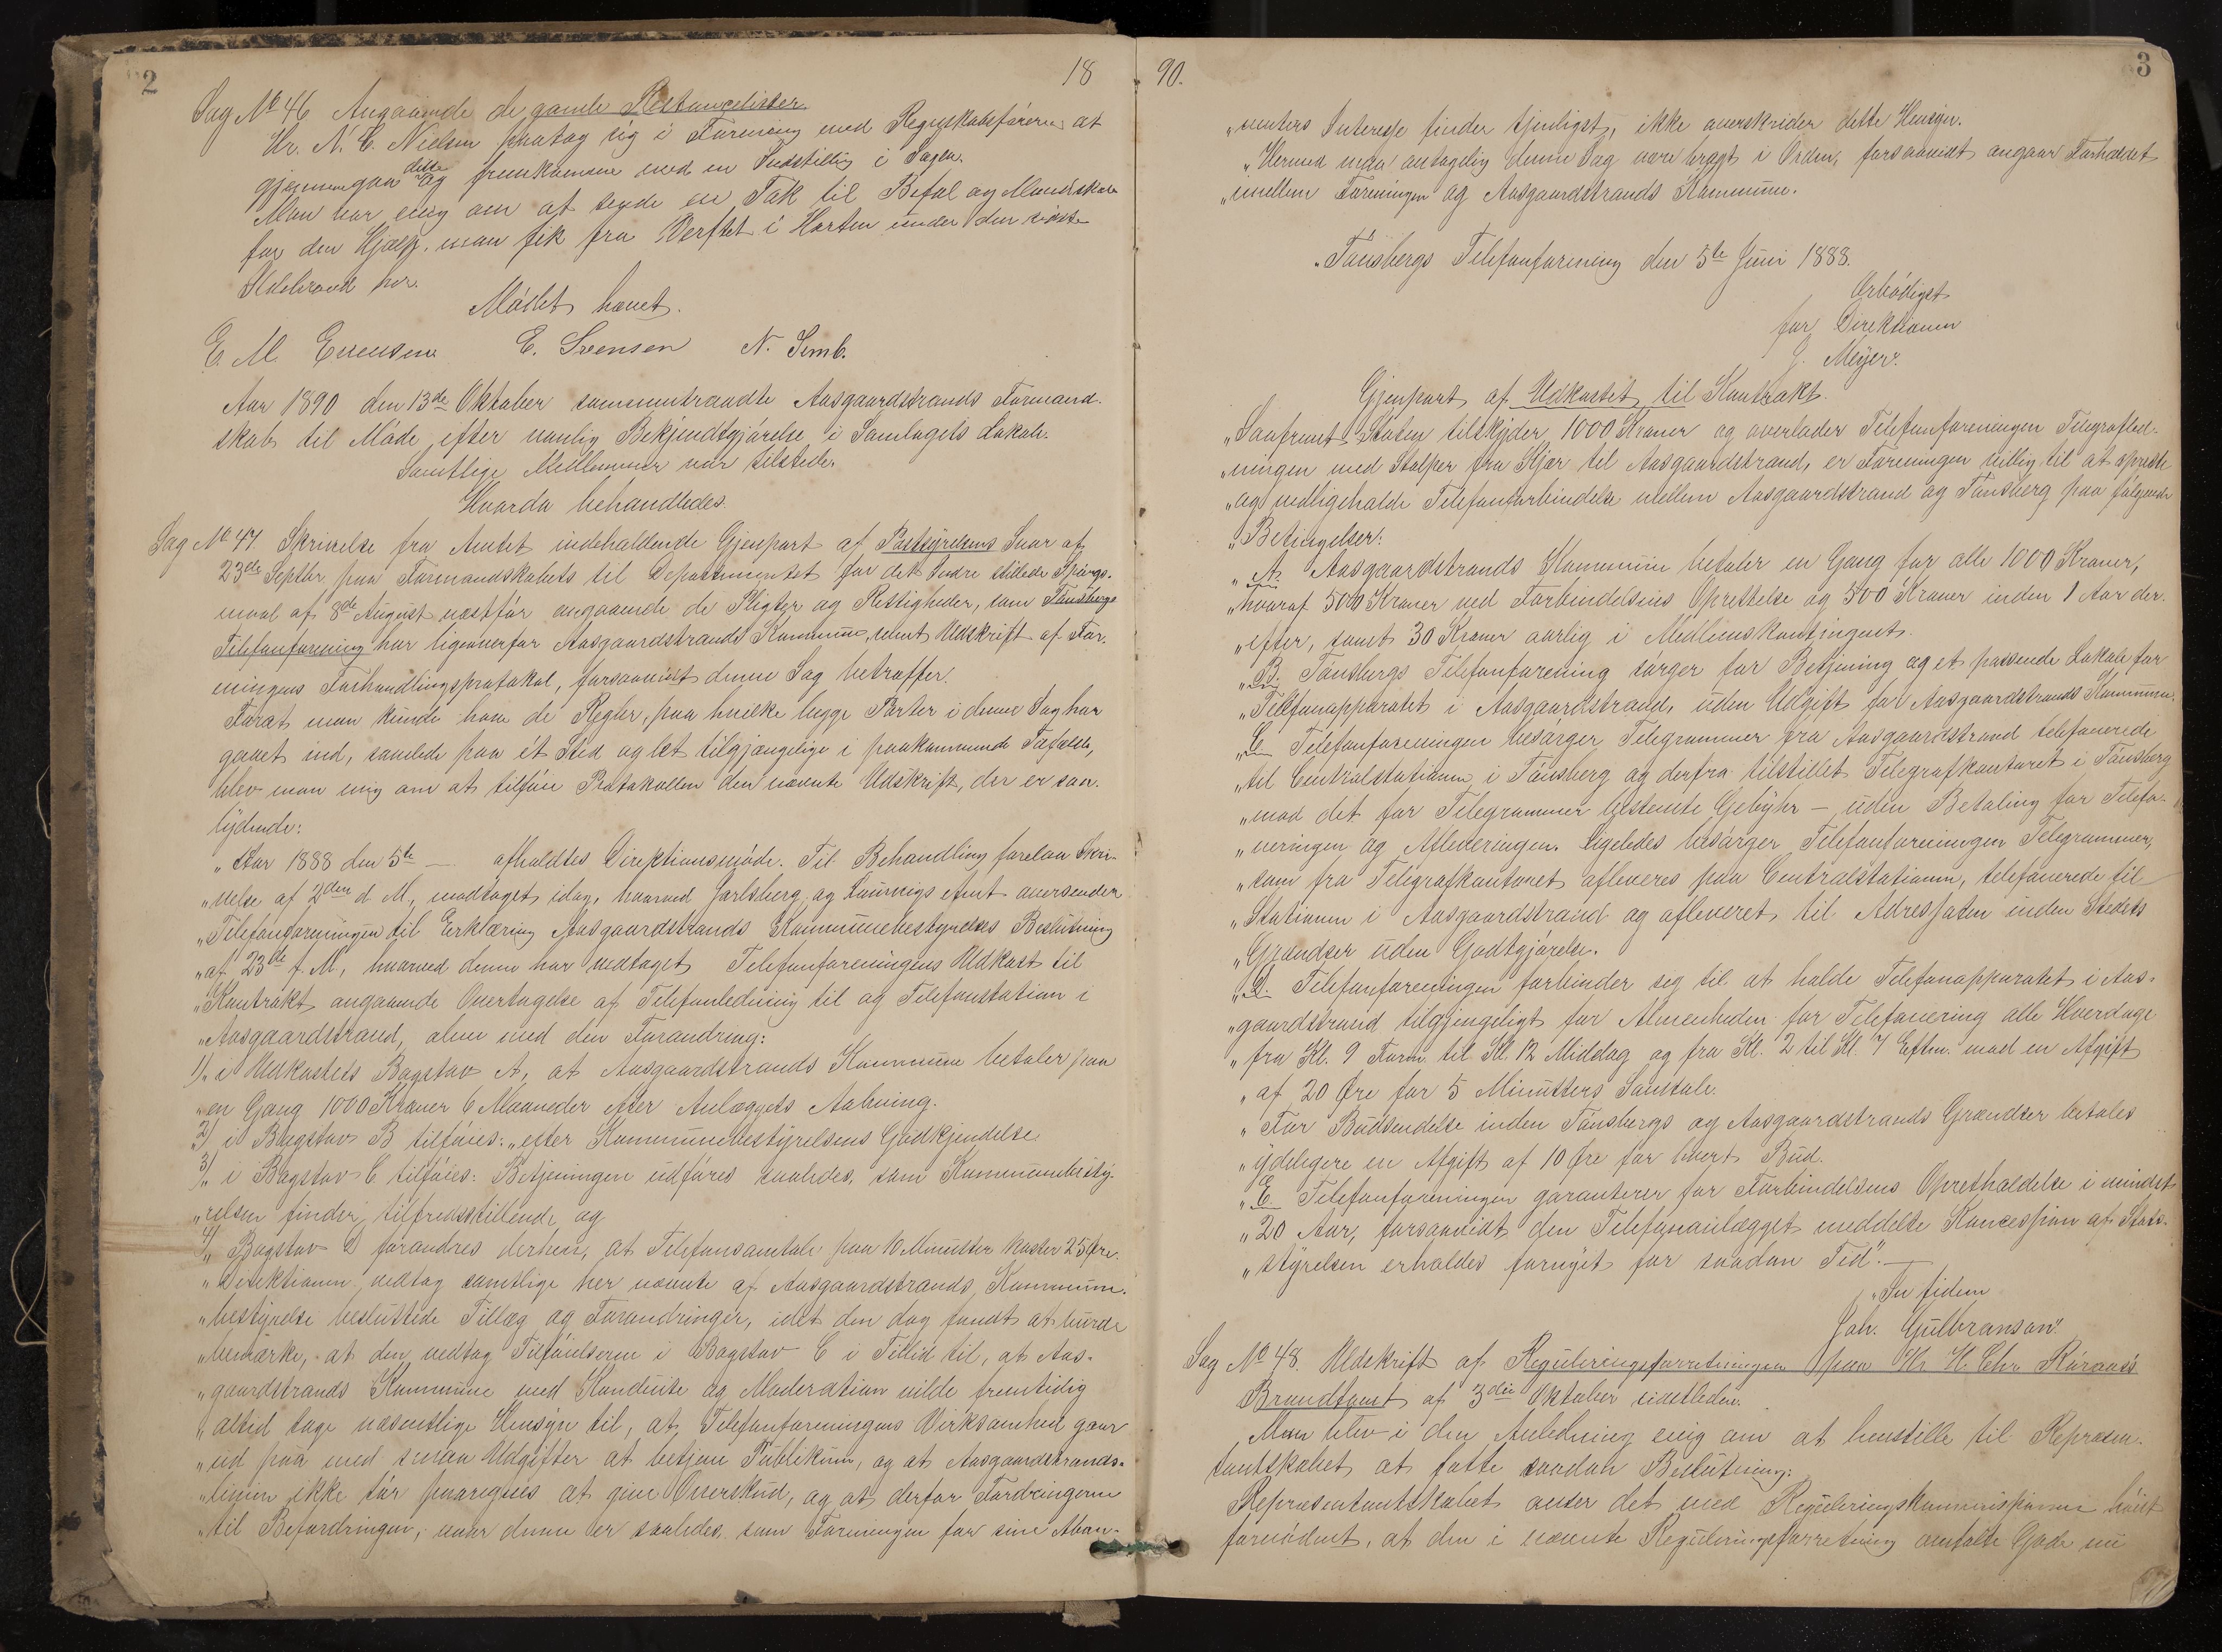 2
18
Sag No 46 Angaaende de gamle Restancelister.
Hr. N. C. Nielsen paatog sig i Forening med Regnskabsføreren at
gjennemgaa dette og fremkomme med en Indstilling i Sagen.
Man var enig om at sende en Tak til Befal og Mandskab
for den Hjælp, man fik fra Verftet i Horten under den sidste
Ildebrand her.
Mødet hævet.
E. M. Evensen E. Svensen N. Semb.
Aar 1890 den 13de Oktober sammentraadte Aasgaardstrands Formand-
skab til Møde efter vanlig Bekjendtgjørelse i Samlagets Lokale.
Samtlige Medlemmer var tilstede.
Hvorda behandledes.
Sag No 47. Skrivelse fra Amtet indeholdende Gjenpart af Poststyrelsens Svar af
23de Septbr. paa Formandskabets til Departementet for det Indre stillede Spørgs-
maal af 8de August næstfør angaaende de Pligter og Rettigheder, som Tønsbergs
Telefonforening har ligeoverfor Aasgaardstrands Kommune, samt Udskrift af For-
eningens Forhandlingsprotokol, forsaavidt denne Sag betræffer.
Forat man kunde have de Regler, paa hvilke begge Parter i denne Sag har
gaaet ind, samlede paa ét Sted og let tilgjængelige i paakommende Tilfælde,
blev man enig om at tilføre Protokollen den nævnte Udskrift, der er saa-
lydende:
„Aar 1888 den 5te — afholdtes Direktionsmøde. Til Behandling forelaa Skri-
„velse af 2den d. M., modtaget idag, hvorved Jarlsberg og Laurvigs Amt oversender
„Telefonforeningen til Erklæring Aasgaardstrands Kommunebestyrelses Beslutning
„af 23de f. M., hvorved denne har vedtaget Telefonforeningens Udkast til
„Kontrakt angaaende Overtagelse af Telefonledning til og Telefonstation i
„Aasgaardstrand, alene med den Forandring:
1) „i Udkastets Bogstav A, at Aasgaardstrands Kommune betaler paa
„en Gang 1000 Kroner 6 Maaneder efter Anlæggets Aabning.
2) „i Bogstav B tilføies: „efter Kommunebestyrelsens Godkjendelse.
3) „i Bogstav C tilføies: Betjeningen udføres saaledes, som Kommunebesty-
„relsen finder tilfredsstillende og
4) „Bogstav D forandres derhen, at Telefonsamtale paa 10 Minutter koster 25 Øre.
„Direktionen vedtog samtlige her nævnte af Aasgaardstrands Kommune-
„bestyrelse besluttede Tillæg og Forandringer, idet den dog fandt at burde
„bemærke, at den vedtog Tilføielserne i Bogstav C i Tillid til, at Aas-
„gaardstrands Kommune med Konduite og Moderation vilde fremtidig
„altid tage væsentlige Hensyn til, at Telefonforeningens Virksomhed gaar
„ud paa med smaa Udgifter at betjene Publikum, og at Aasgaardstrands-
„linjen ikke tør paaregnes at give Overskud, og at derfor Fordringerne
„til Befordringen, naar denne er saaledes, som Foreningen for sine Abon-
90.
3
„nenters Interesse finder tjenligst, ikke overskrider dette Hensyn.
„Hermed maa antagelig denne Sag være bragt i Orden, forsaavidt angaar Forholdet
„imellem Foreningen og Aasgaardstrands Kommune.
„Tønsbergs Telefonforening den 5te Juni 1888.
Ærbødigst
for Direktionen
J. Meyer.
Gjenpart af Udkastet til Kontrakt.
„Saafremt Staten tilskyder 1000 Kroner og overlader Telefonforeningen Telegrafled-
„ningen med Stolper fra Kjær til Aasgaardstrand, er Foreningen villig til at oprette
„og vedligeholde Telefonforbindelse mellem Aasgaardstrand og Tønsberg paa følgende
„Betingelser:
„A. Aasgaardstrands Kommune betaler en Gang for alle 1000 Kroner,
„hvoraf 500 Kroner ved Forbindelsens Oprettelse og 500 Kroner inden 1 Aar der-
„efter, samt 30 Kroner aarlig i Medlemskontingent.
„B. Tønsbergs Telefonforening sørger for Betjening og et passende Lokale for
„Telefonapparatet i Aasgaardstrand, uden Udgift for Aasgaardstrands Kommune.
„C. Telefonforeningen besørger Telegrammer fra Aasgaardstrand telefonerede
„til Centralstationen i Tønsberg og derfra tilstillet Telegrafkontoret i Tønsberg
„mod det for Telegrammer bestemte Gebyhr — uden Betaling for Telefo-
„neringen og Afleveringen. Ligeledes besørger Telefonforeningen Telegrammer,
„som fra Telegrafkontoret afleveres paa Centralstationen, telefonerede til
„Stationen i Aasgaardstrand og afleveret til Adressaten inden Stedets
„Grændser uden Godtgjørelse.
„D. Telefonforeningen forbinder sig til at holde Telefonapparatet i Aas-
„gaardstrand tilgjengeligt for Almenheden for Telefonering alle Hverdage
„fra Kl. 9 Form. til Kl. 12 Middag og fra Kl. 2 til Kl. 7 Efthm. mod en Afgift
„af 20 Øre for 5 Minutters Samtale.
„For Budsendelse inden Tønsbergs og Aasgaardstrands Grændser betales
„ydeligere en Afgift af 10 Øre for hvert Bud.
„E. Telefonforeningen garanterer for Forbindelsens Opretholdelse i mindst
„20 Aar, forsaavidt den Telefonanlægget meddelte Koncession af Stats-
„styrelsen erholdes fornyet for saadan Tid“. —
„In fidem
Joh. Gulbranson“.
Sag No 48. Udskrift af Reguleringsforretningen paa Hr. H. Chr.
Brandtomt af 3die Oktober sidstleden.
Man blev i den Anledning enig om at henstille til Repræsen-
tantskabet at fatte saadan Beslutning:
Repræsentantskabet anser det med Reguleringskommissionen høist
fornødent, at den i nævnte Reguleringsforretning omtalte Gade nu